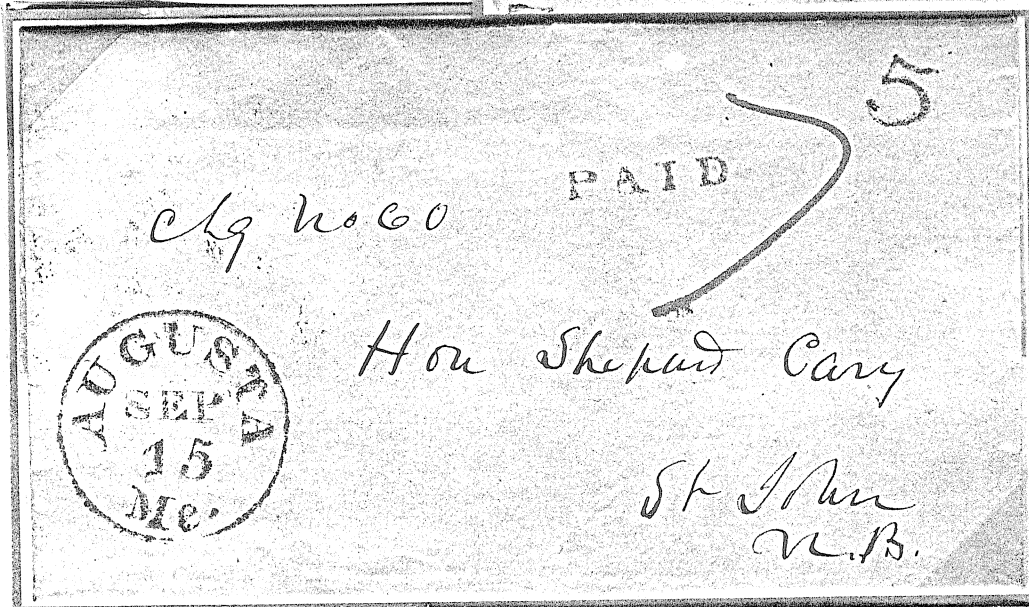 5
PAID
chg No 60
AUGUSTA
SEP
15
Me.
Hon Shepard Cary
St John
N.B.